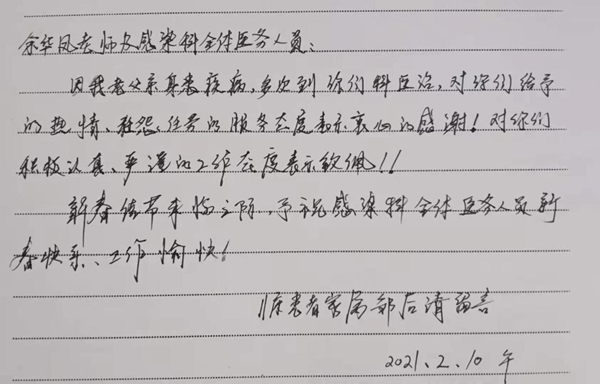 余华凤老师及感染科全体医务人员：
因我老父亲身患疾病，多次到你们科医治，对你们给予
的热情、任劳的服务态度表示衷心的感谢！对你们
积极认真、严谨的工作态度表示钦佩！！
新春佳节来临之际，予祝感染科全体医务人员新
春快乐、工作愉快！
患者家属 后清留言
2021.2.10 午